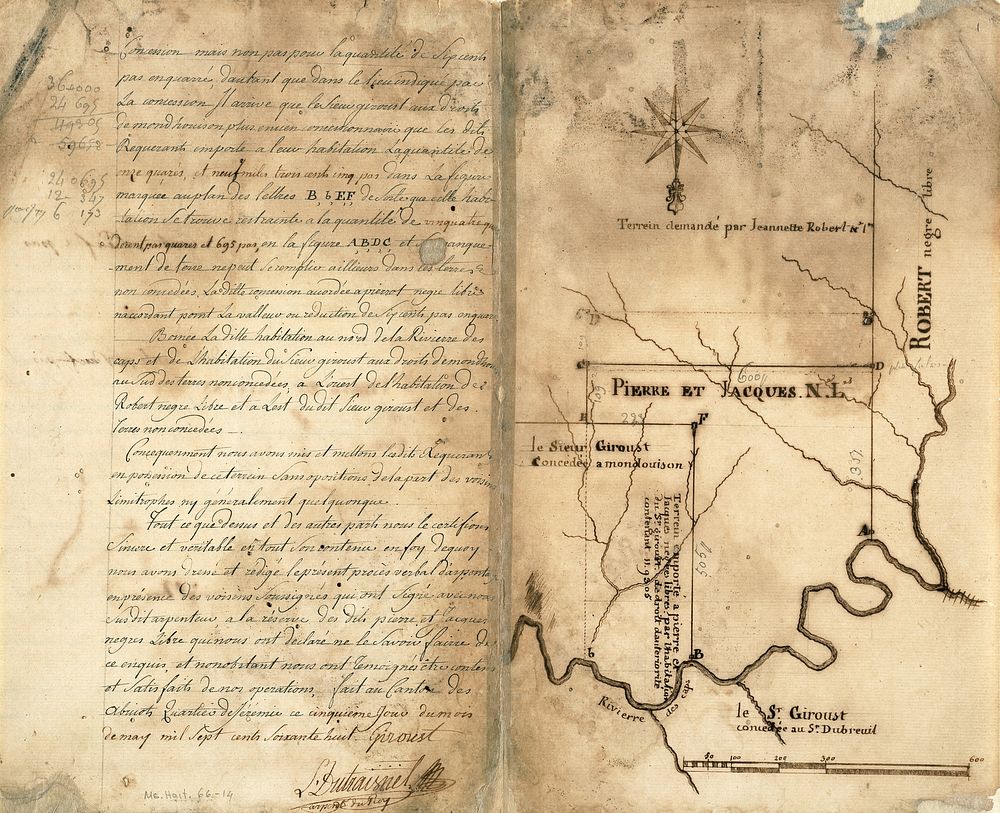 Concession mais non pas pour la quantité de Six cents
pas en quarré, d'autant que dans le lieu indiqué par
La concession Il arrive que le Sieur giroust aux droits
de mondlouison plus encien concessionnaire que les dits
Requerants emporte a leur habitation La quantité de
onze quarés, et neuf miles trois cents cinq pas dans La figure
marquée au plan des lettres B b E F de Sorte que cette habi-
tation Se trouve restrainte a la quantité de vinquatre qu
quarés et 695 pas, en la figure ABDC et manque-
ment de terre ne peut Se remplir ailliers dans les terres
non concedées, La ditte concession accordée a pierrot negre libre
n'acordant point La valleur ou reduction de Six cents pas en quaré
Bornée La ditte habitation au nord de la Rivierre des
caps et de L'habitation du Sieur giroust aux droits de mondloui
au Sud des terres non concedées, a L'ouest de L'habitation de
Robert negre Libre et a L'est du dit Sieur giroust et des
Terres non concedées —.
Consequenment nous avons mis et mettons les dits Requerants
en possession de ce terrein Sans opositions de la part des voisins
Limitrophes ny generalement quelquonque
Tout ce que dessus et des autres parts nous le certifions
Sincere et veritable en tout Son contenue en foy de quoy
nous avons dressé et redigé le présent procès verbal d'arpenta
en presence des voisins Soussignés qui ont Signé avec nous
Sus dit arpenteur a la réserve des dits pierre et Jacques
negres Libre qui nous ont déclaré ne le Savoir faire de
ce enquis, et nonobstant nous ont temoignés être contens
et Satisfaits de nos operations. fait au Canton des
Abricots Quartier de Jeremie ce cinquieme Jour du mois
de may mil Sept cents Soixante huit. Giroust
arpent. du Roy
364000
24 695
24 0695
12 347
6 173
Ms. Hait. 66-14
Terrein demandé par Jeannette Robert
ROBERT negre libre
D
C
D
600
PIERRE ET JACQUES. N. L.
E
F
le Sieur Giroust
Concedée a mondlouison
Terrein emporté a pierre et
Jacques negre libres par l'habitation
du Sr giroust de droit d'anteriorité
contenant 11. 9305
A
b
B
Rivierre des caps
le Sr. Giroust
concedée au Sr. Dubreuil
50 100 200 300 600